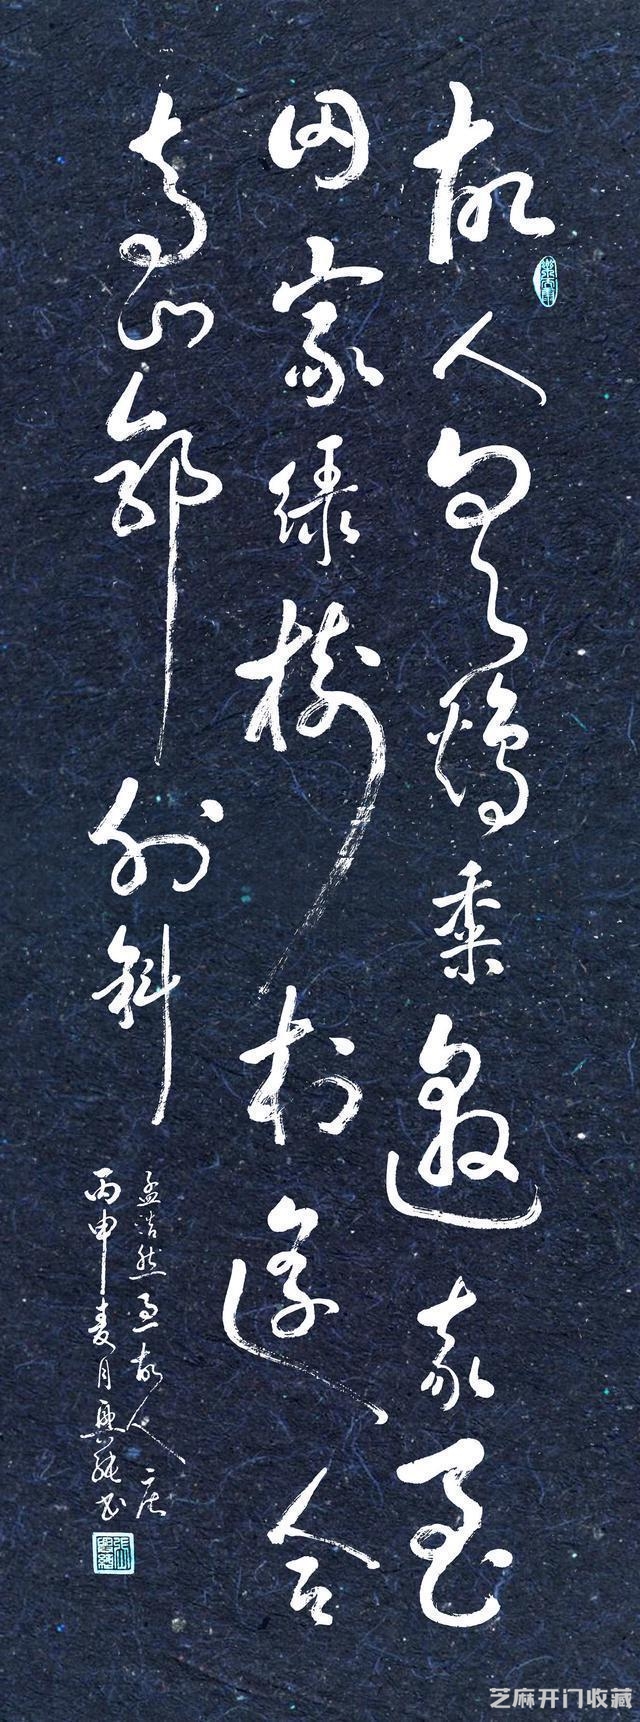 故人具鷄黍邀我至
田家綠樹村邊合
青山郭外斜
孟浩然過故人庄
丙申 月 书
芝麻开门收藏